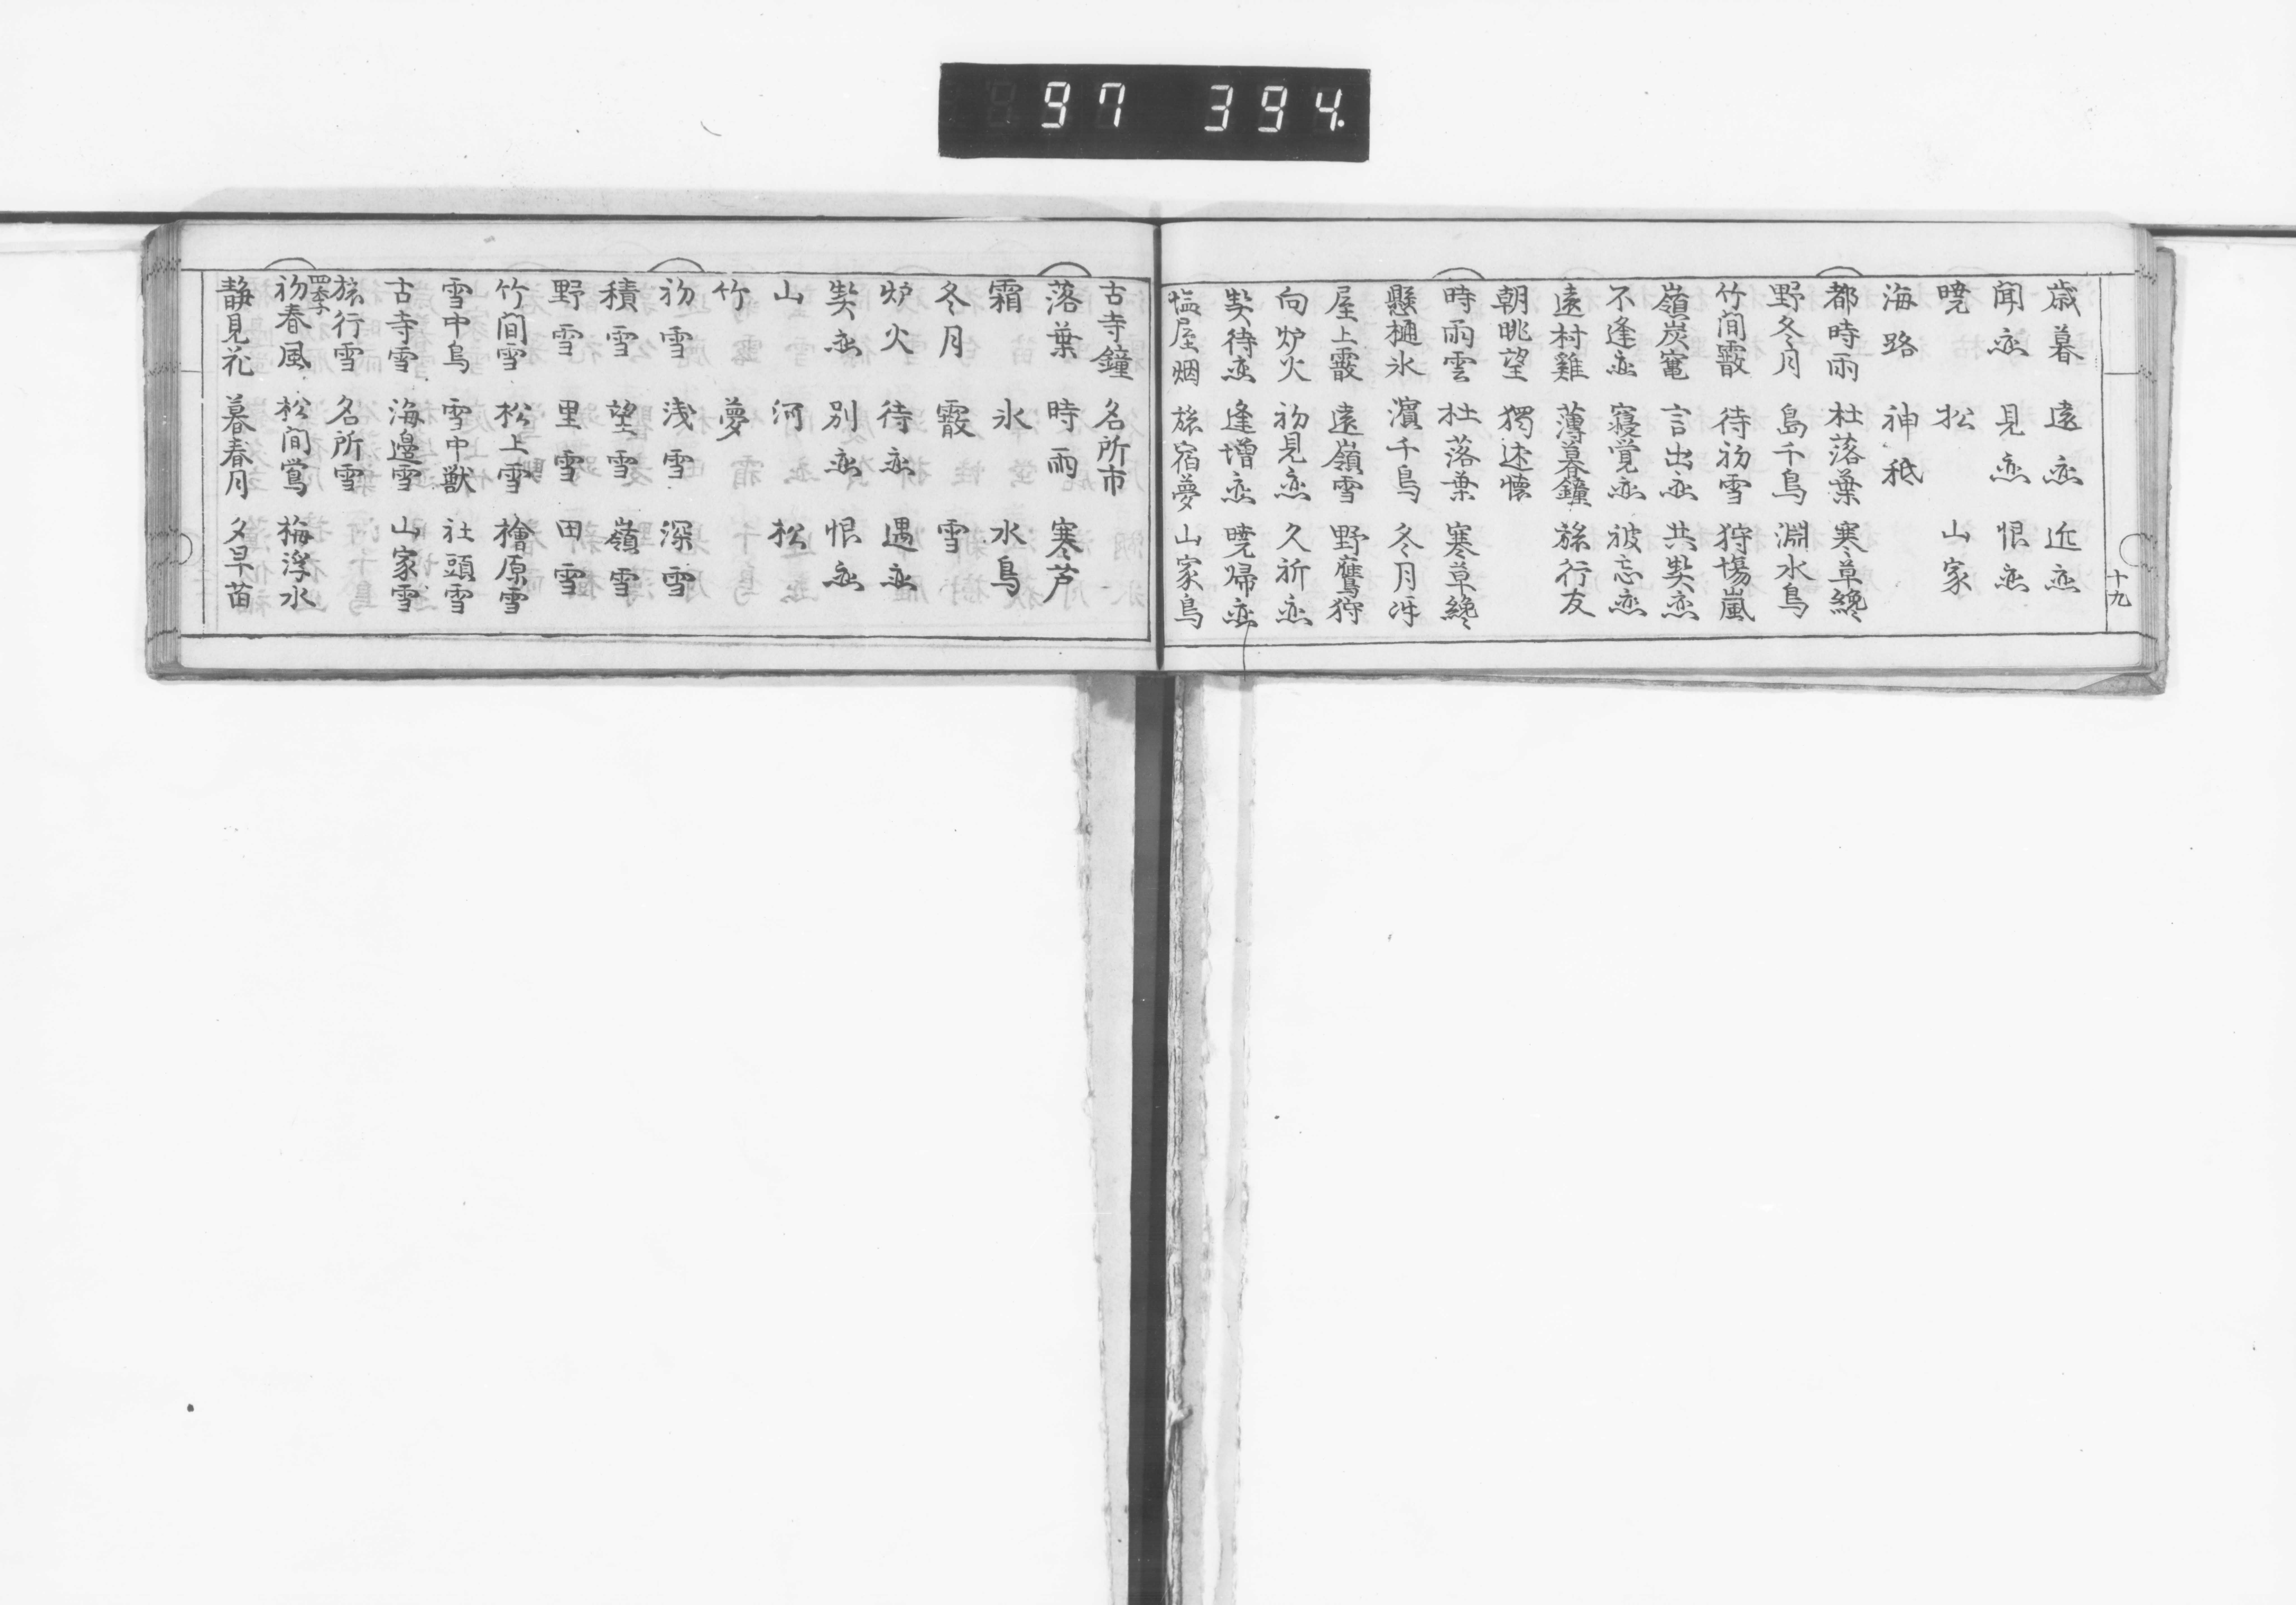 97 394.
歳暮 遠恋 近恋
聞恋 見恋 恨恋
暁 松 山家
海路 神祇
都時雨 杜落葉 寒草纔
野冬月 島千鳥 淵水鳥
竹间霰 待初雪 狩場嵐
嶺炭竃 言出恋 共契恋
不逢恋 寝覚恋 被忘恋
遠村雞 薄暮鐘 旅行友
朝眺望 獨述懐
時雨雲 杜落葉 寒草纔
懸樋氷 濱千鳥 冬月冴
屋上霰 遠嶺雪 野鷹狩
向炉火 初見恋 久祈恋
契待恋 逢増恋 暁帰恋
塩屋烟 旅宿夢 山家鳥
十九
古寺鐘 名所市
落葉 時雨 寒芦
霜 氷 水鳥
冬月 霰 雪
炉火 待恋 遇恋
契恋 別恋 恨恋
山 河 松
竹 夢
初雪 浅雪 深雪
積雪 望雪 嶺雪
野雪 里雪 田雪
竹间雪 松上雪 檜原雪
雪中鳥 雪中獣 社頭雪
古寺雪 海邊雪 山家雪
旅行雪 名所雪
四季
初春風 松间鴬 梅浮水
静見花 暮春月 夕早苗